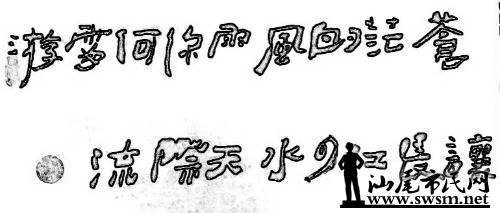 蒼茫的風雨你何處游
讓長江的水天際流
汕尾市民网
www.swsm.net